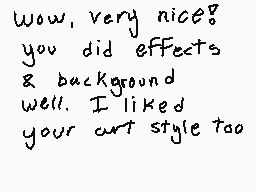 wow, very nice!
you did effects
& background
well. I liked
your art style too